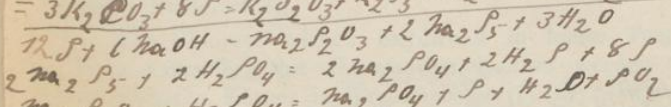 = 3K2CO3 + 8S = K2S2O3 +
12 S + 6 NaOH - Na2S2O3 + 2 Na2S5 + 3 H2O
2 Na2S5 + 2 H2SO4 = 2 Na2SO4 + 2 H2S + 8 S
= Na2SO4 + S + H2O + SO2